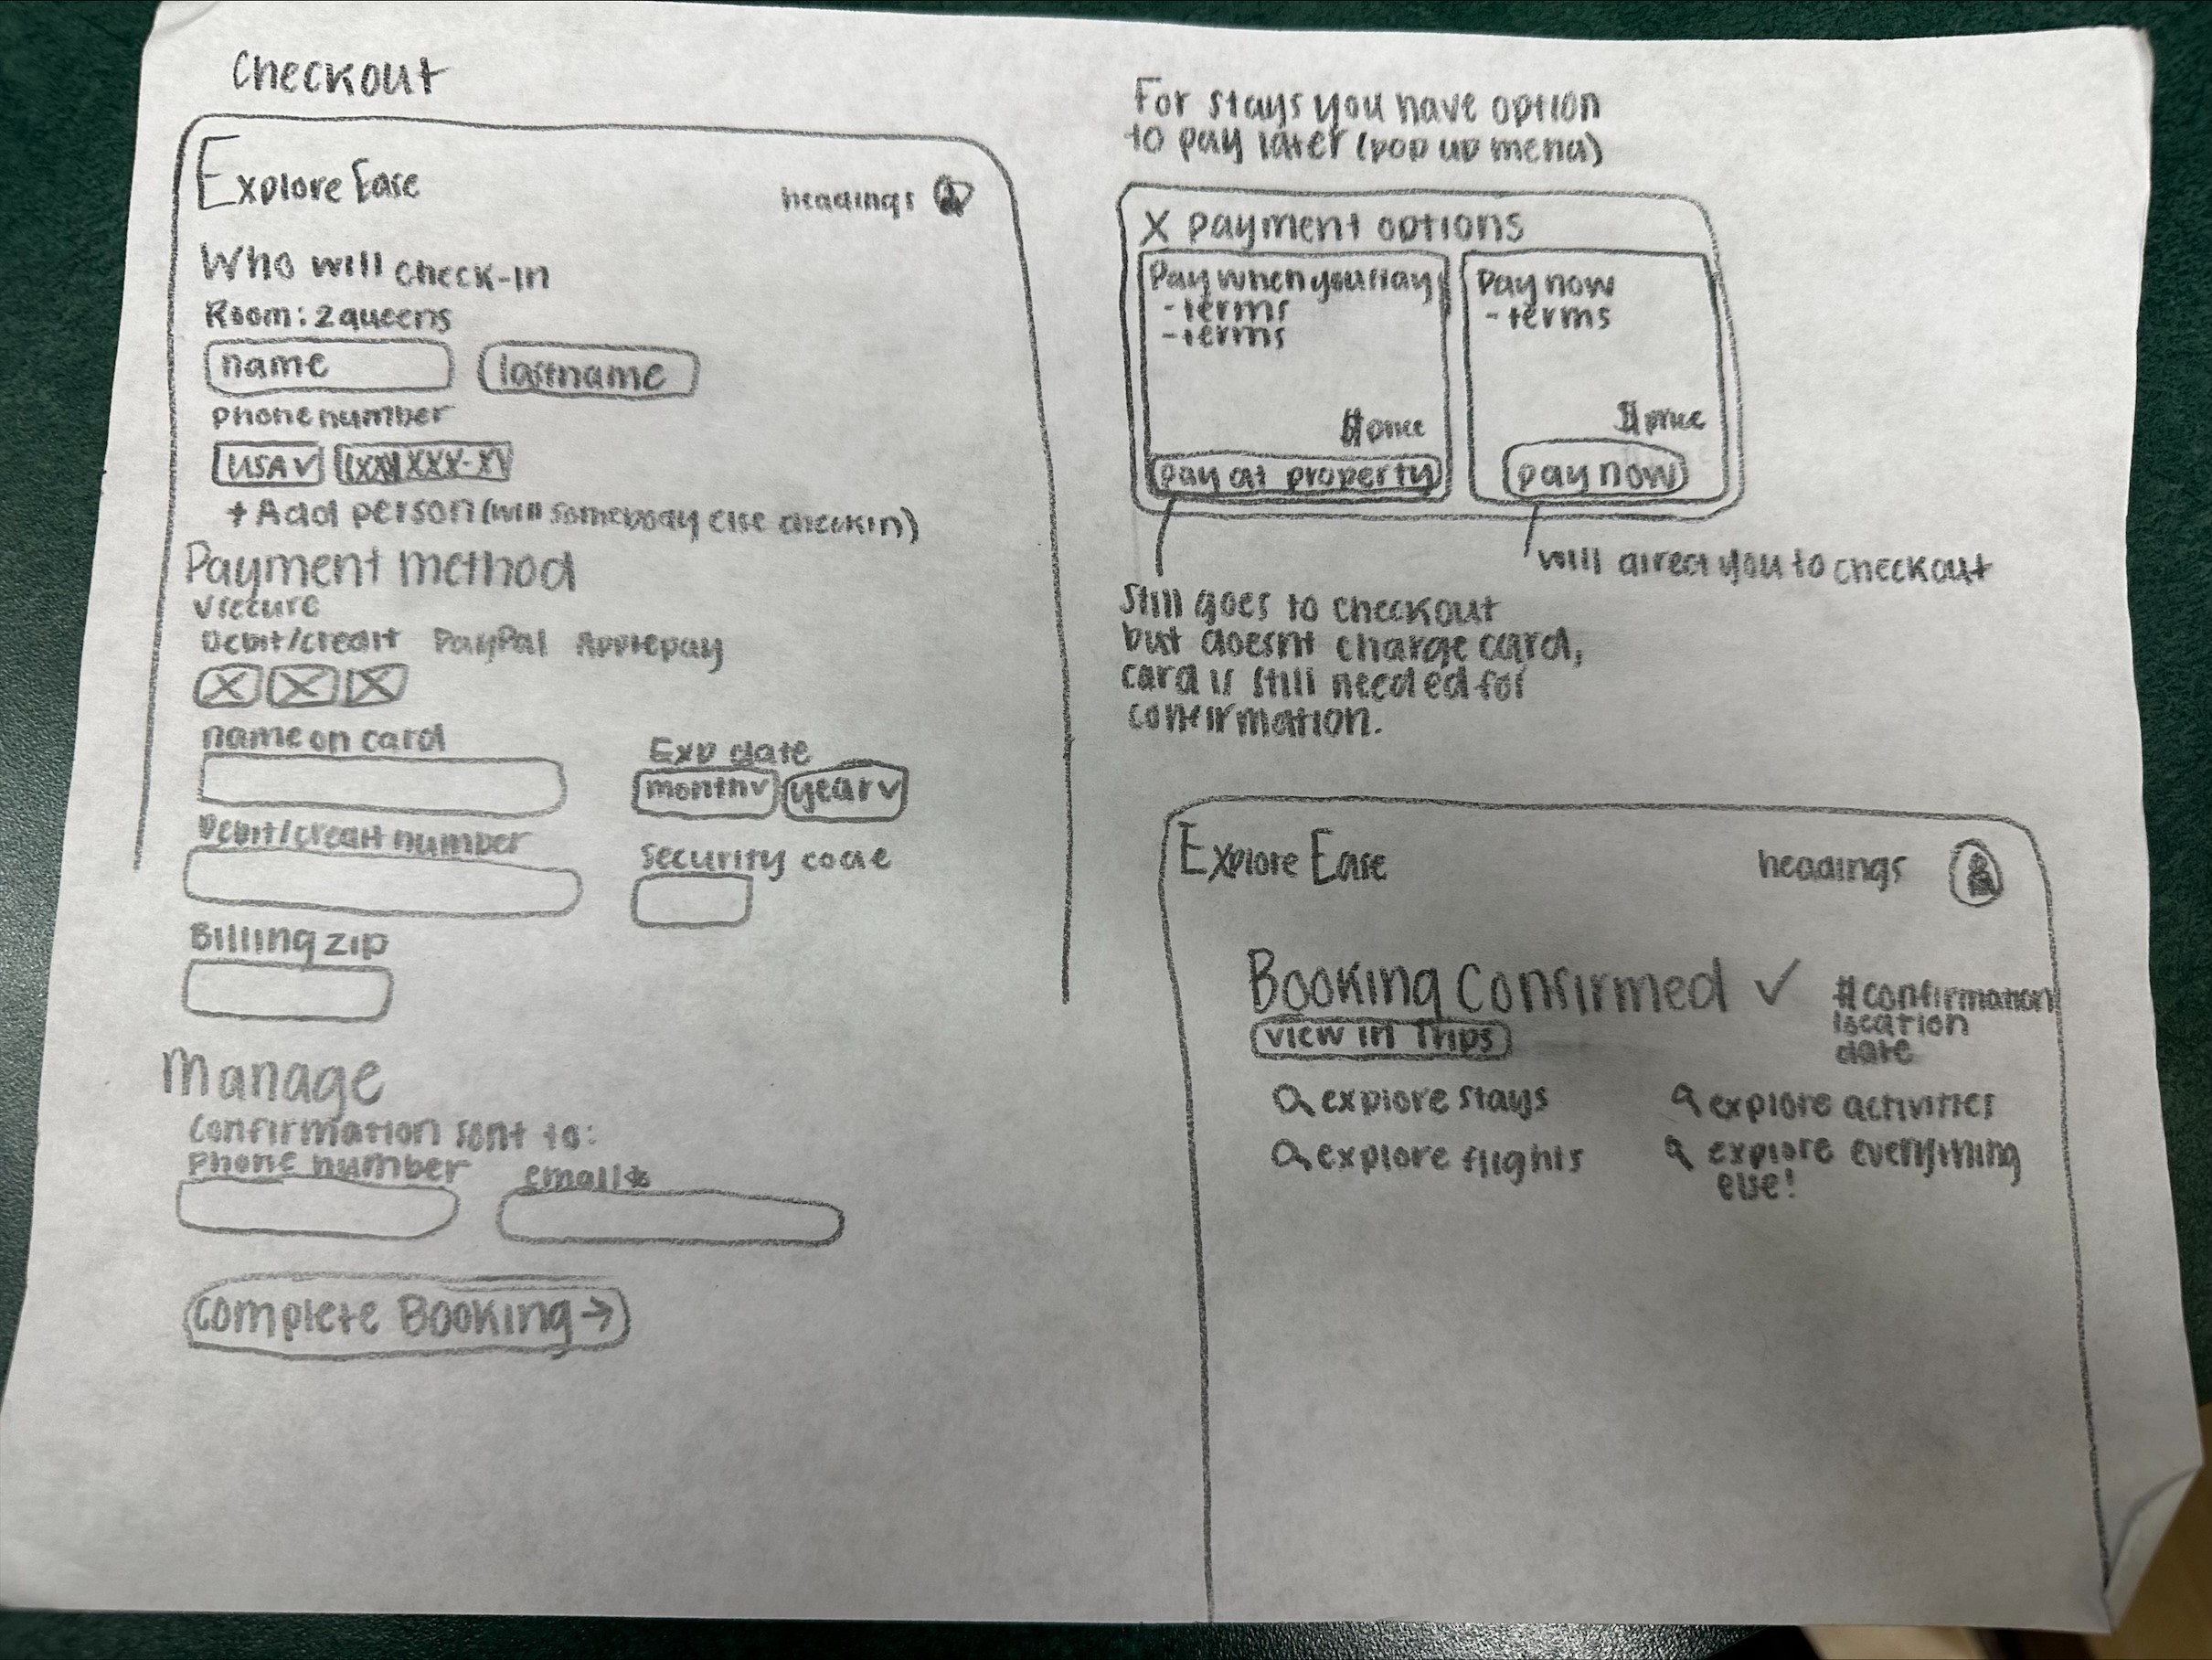 Checkout
Explore Ease
headings
Who will check-in
Room: 2 queens
name
lastname
phone number
USA v
(XX) XXX-XX
+ Add person (will somebody else checkin)
Payment method
secure
Debit/credit PayPal Applepay
name on card
Exp date
month v
year v
Debit/credit number
security code
Billing zip
Manage
confirmation sent to:
phone number
email*
Complete Booking →
For stays you have option
to pay later (pop up menu)
X payment options
Pay when you stay
- terms
- terms
$ price
pay at property
Pay now
- terms
$ price
pay now
will direct you to checkout
Still goes to checkout
but doesnt charge card,
card is still needed for
confirmation.
Explore Ease
headings
Booking Confirmed ✓
# confirmation
location
date
view in Trips
explore stays
explore activities
explore flights
explore everything
else!